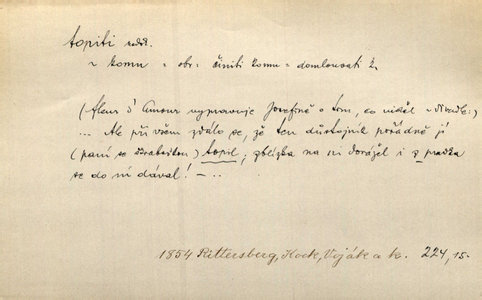 topiti nedok.
~ komu = obr: činiti komu = domlouvati k.
(Fleur d'Amour vypravuje Josefině o tom, co viděl v divadle:)
... Ale při všem zdálo se, že ten důstojník pořádně jí
(paní se škraboškou) topil; zblízka na ni dorážel i z
se do ní dával! – ..
1854 Rittersberg, Kock, Voják a k. 224, 15.